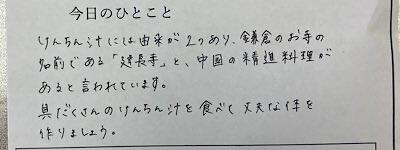 今日のひとこと
けんちん汁には由来が2つあり、鎌倉のお寺の
名前である「建長寺」と、中国の精進料理が
あると言われています。
具だくさんのけんちん汁を食べて丈夫な体を
作りましょう。